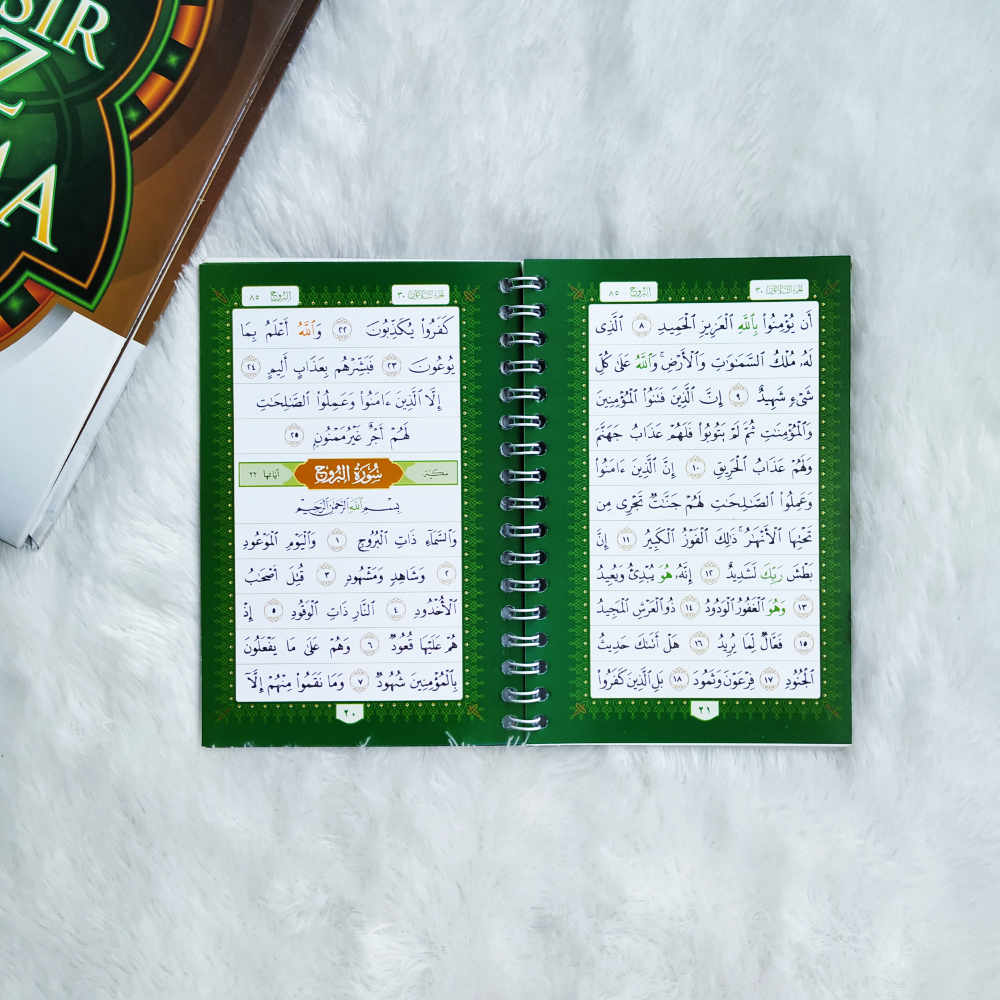 SIR
Z
MA
الجزء الثلاثون ٣٠
البروج ٨٥
كَفَرُوا۟ يُكَذِّبُونَ ٢٢ وَٱللَّهُ أَعْلَمُ بِمَا
يُوعُونَ ٢٣ فَبَشِّرْهُم بِعَذَابٍ أَلِيمٍ ٢٤
إِلَّا ٱلَّذِينَ ءَامَنُوا۟ وَعَمِلُوا۟ ٱلصَّـٰلِحَـٰتِ
لَهُمْ أَجْرٌ غَيْرُ مَمْنُونٍۭ ٢٥
مكية سُورَةُ البُرُوج آياتها ٢٢
بِسْمِ ٱللَّهِ ٱلرَّحْمَـٰنِ ٱلرَّحِيمِ
وَٱلسَّمَآءِ ذَاتِ ٱلْبُرُوجِ ١ وَٱلْيَوْمِ ٱلْمَوْعُودِ
٢ وَشَاهِدٍ وَمَشْهُودٍ ٣ قُتِلَ أَصْحَـٰبُ
ٱلْأُخْدُودِ ٤ ٱلنَّارِ ذَاتِ ٱلْوَقُودِ ٥ إِذْ
هُمْ عَلَيْهَا قُعُودٌ ٦ وَهُمْ عَلَىٰ مَا يَفْعَلُونَ
بِٱلْمُؤْمِنِينَ شُهُودٌ ٧ وَمَا نَقَمُوا۟ مِنْهُمْ إِلَّآ
٢٠
الجزء الثلاثون ٣٠
البروج ٨٥
أَن يُؤْمِنُوا۟ بِٱللَّهِ ٱلْعَزِيزِ ٱلْحَمِيدِ ٨ ٱلَّذِى
لَهُۥ مُلْكُ ٱلسَّمَـٰوَٰتِ وَٱلْأَرْضِ ۚ وَٱللَّهُ عَلَىٰ كُلِّ
شَىْءٍ شَهِيدٌ ٩ إِنَّ ٱلَّذِينَ فَتَنُوا۟ ٱلْمُؤْمِنِينَ
وَٱلْمُؤْمِنَـٰتِ ثُمَّ لَمْ يَتُوبُوا۟ فَلَهُمْ عَذَابُ جَهَنَّمَ
وَلَهُمْ عَذَابُ ٱلْحَرِيقِ ١٠ إِنَّ ٱلَّذِينَ ءَامَنُوا۟
وَعَمِلُوا۟ ٱلصَّـٰلِحَـٰتِ لَهُمْ جَنَّـٰتٌ تَجْرِى مِن
تَحْتِهَا ٱلْأَنْهَـٰرُ ۚ ذَٰلِكَ ٱلْفَوْزُ ٱلْكَبِيرُ ١١ إِنَّ
بَطْشَ رَبِّكَ لَشَدِيدٌ ١٢ إِنَّهُۥ هُوَ يُبْدِئُ وَيُعِيدُ
١٣ وَهُوَ ٱلْغَفُورُ ٱلْوَدُودُ ١٤ ذُو ٱلْعَرْشِ ٱلْمَجِيدُ
١٥ فَعَّالٌ لِّمَا يُرِيدُ ١٦ هَلْ أَتَىٰكَ حَدِيثُ
ٱلْجُنُودِ ١٧ فِرْعَوْنَ وَثَمُودَ ١٨ بَلِ ٱلَّذِينَ كَفَرُوا۟
٢١